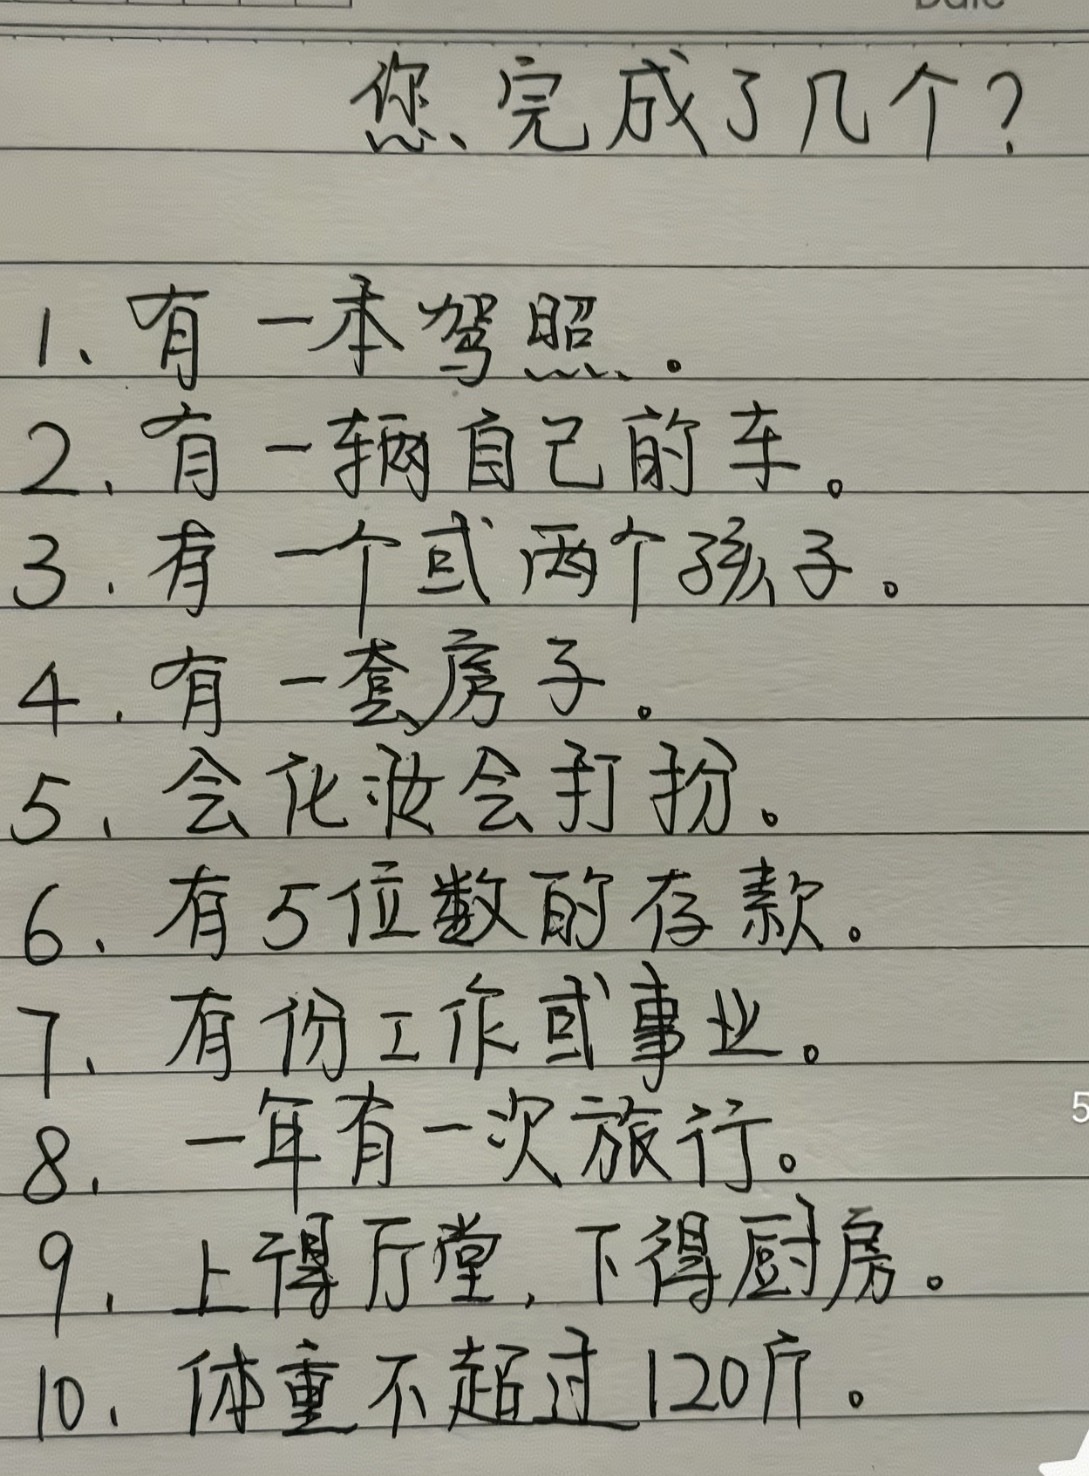 Date
您完成了几个?
1、有一本驾照。
2、有一辆自己的车。
3、有一个或两个孩子。
4、有一套房子。
5、会化妆会打扮。
6、有5位数的存款。
7、有份工作或事业。
8、一年有一次旅行。
9、上得厅堂,下得厨房。
10、体重不超过120斤。
5